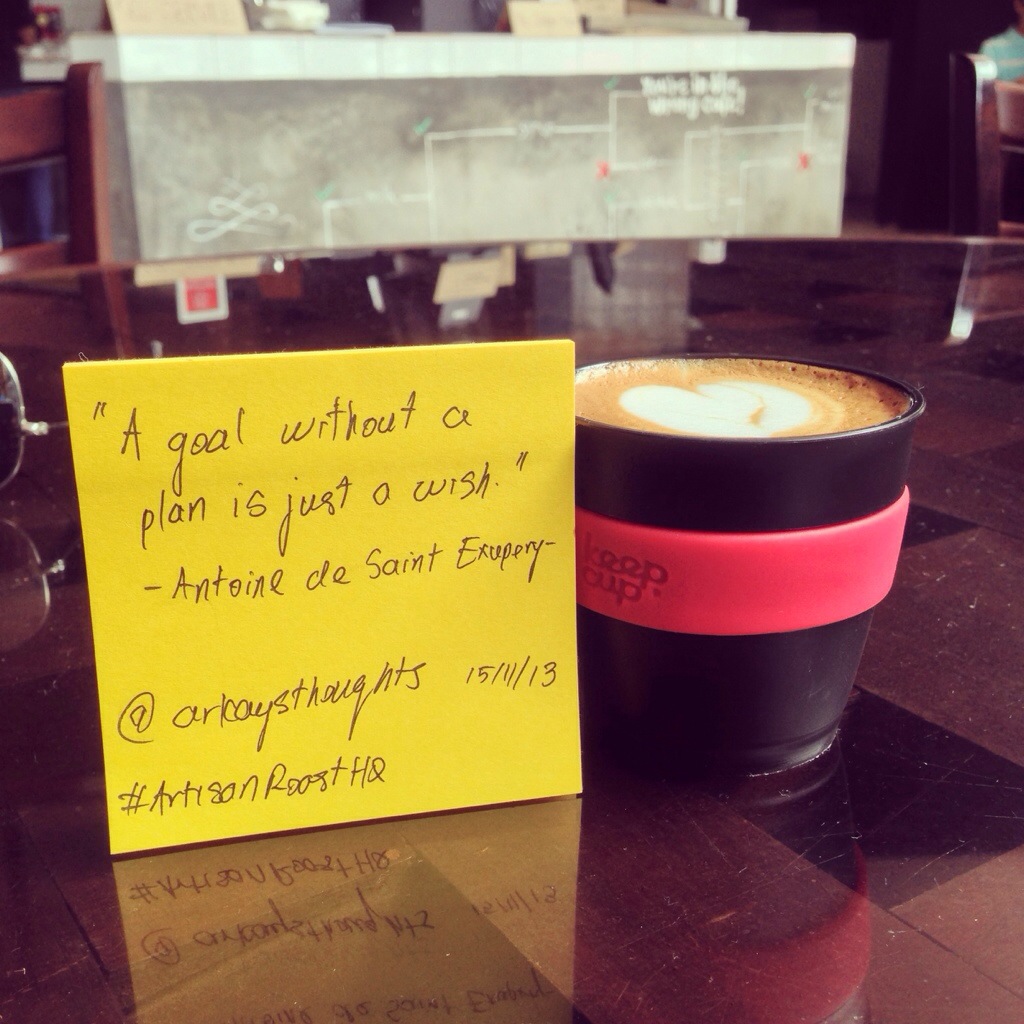 "A goal without a
plan is just a wish."
- Antoine de Saint Exupery -
@arkaysthoughts 15/11/13
#ArtisanRoastHQ
keep
cup
You're in the
wrong cafe!